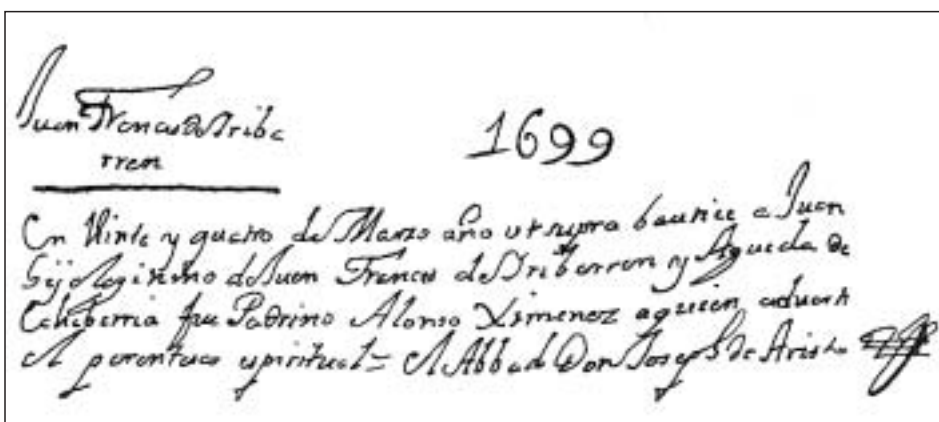 Juan Francco de Yriba
rren
1699
En Uinte y quatro de Marzo año ut supra bautice a Juan
hijo legitimo de Juan Francco de Yribarren y Agueda de
Echeberria fue Padrino Alonso Ximenez a quien aduerti
el parentesco espiritual = El Abbad Don Joseph de